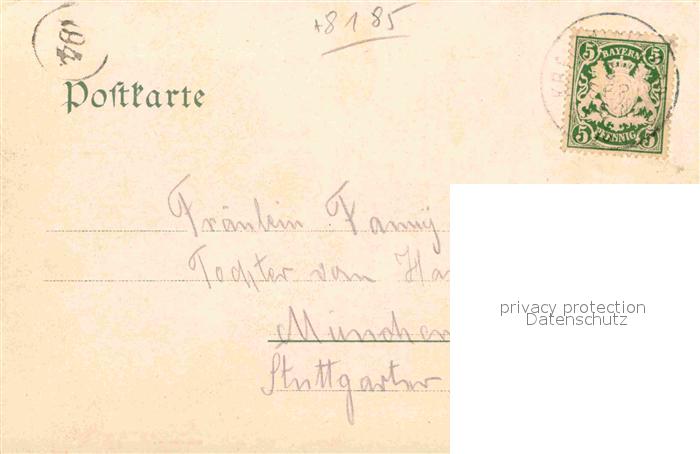 +8 1 85
Postkarte
5 BAYERN 5
5 PFENNIG 5
Fräulein Fanny
Tochter vom Ha
München
Stuttgarter
privacy protection
Datenschutz